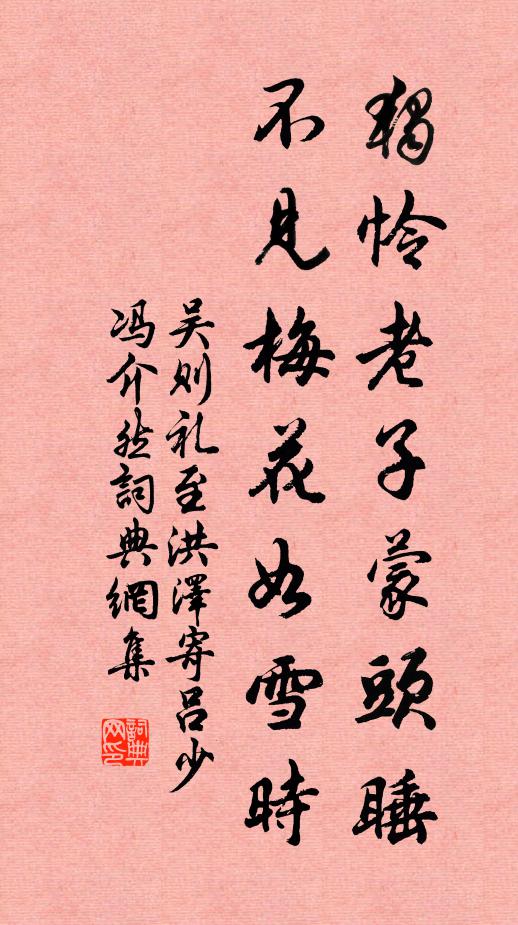 獨怜老子蒙頭睡
不見梅花如雪時
吴则礼至洪澤寄吕少
冯介然詞典網集
詞典
网印